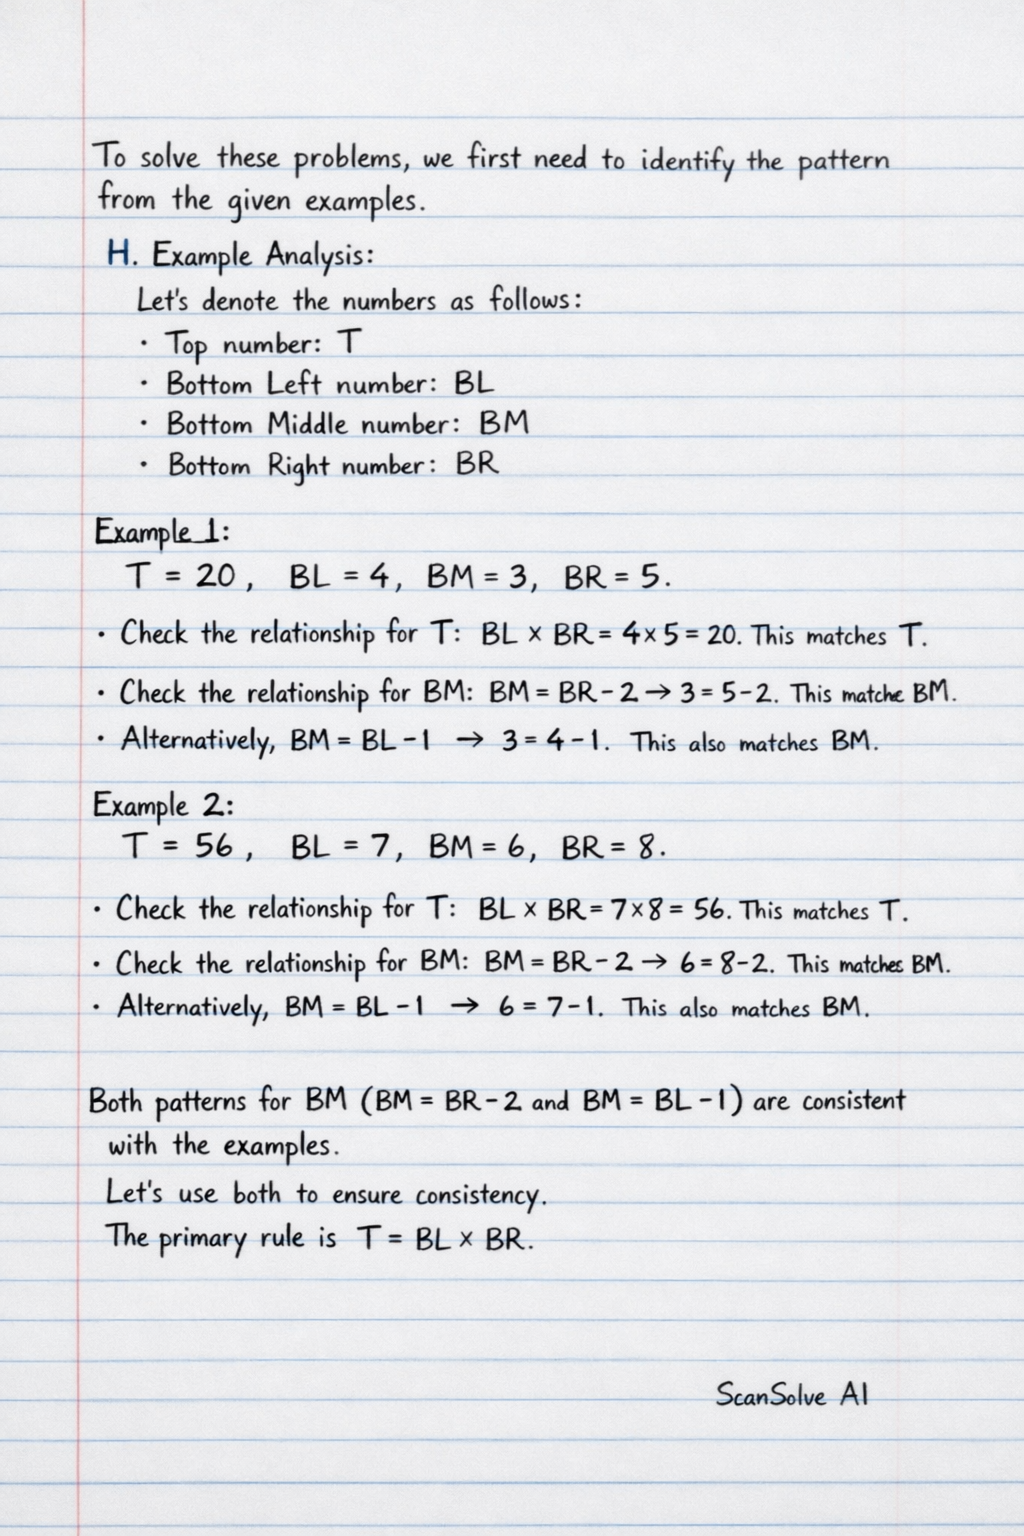 To solve these problems, we first need to identify the pattern
from the given examples.
H. Example Analysis:
Let's denote the numbers as follows:
· Top number: T
· Bottom Left number: BL
· Bottom Middle number: BM
· Bottom Right number: BR
Example 1:
T = 20, BL = 4, BM = 3, BR = 5.
· Check the relationship for T: BL × BR = 4×5 = 20. This matches T.
· Check the relationship for BM: BM = BR - 2 → 3 = 5-2. This matche BM.
· Alternatively, BM = BL - 1 → 3 = 4-1. This also matches BM.
Example 2:
T = 56, BL = 7, BM = 6, BR = 8.
· Check the relationship for T: BL × BR = 7×8 = 56. This matches T.
· Check the relationship for BM: BM = BR - 2 → 6 = 8-2. This matches BM.
· Alternatively, BM = BL - 1 → 6 = 7-1. This also matches BM.
Both patterns for BM (BM = BR - 2 and BM = BL - 1) are consistent
with the examples.
Let's use both to ensure consistency.
The primary rule is T = BL × BR.
ScanSolve AI